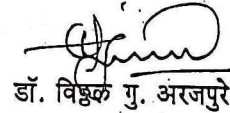 डॉ. विठ्ठल गु. अरजपुरे